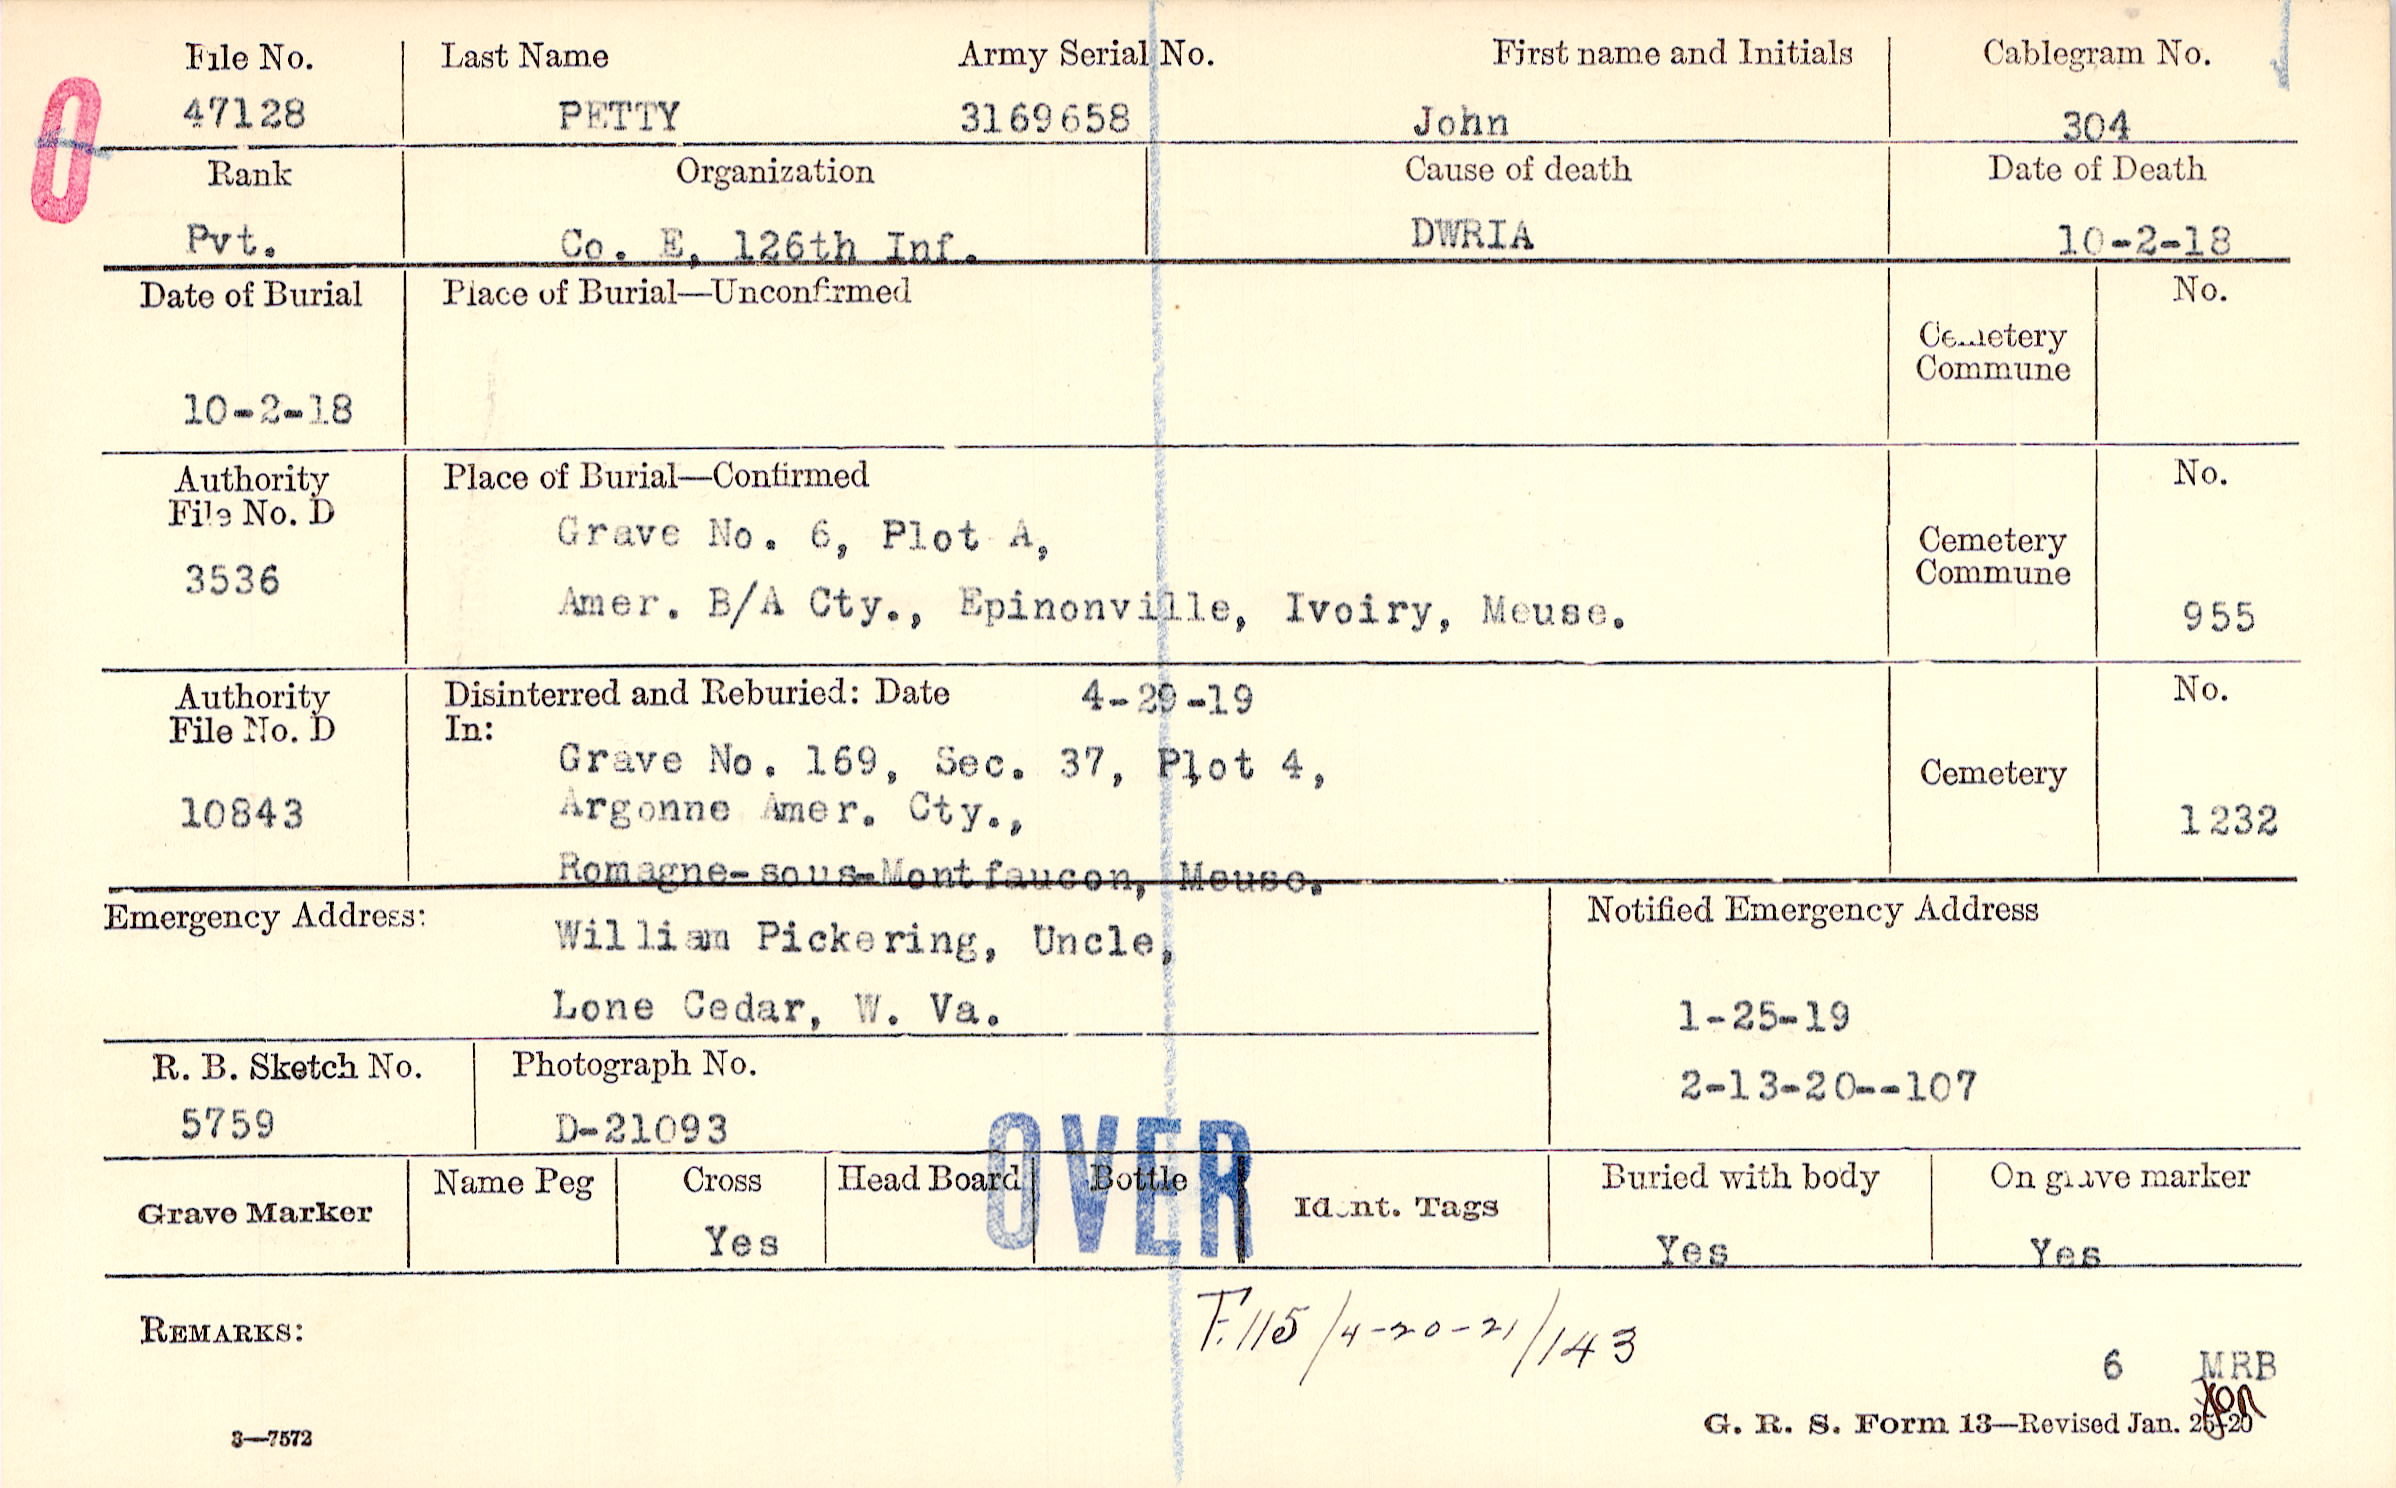 File No. Last Name Army Serial No. First name and Initials Cablegram No.
47128 PETTY 3169658 John 304
Rank Organization Cause of death Date of Death
Pvt. Co. E, 126th Inf. DWRIA 10-2-18
Date of Burial Place of Burial—Unconfirmed No.
Cemetery
Commune
10-2-18
Authority Place of Burial—Confirmed No.
File No. D
Grave No. 6, Plot A,
Cemetery
Commune
3536
Amer. B/A Cty., Epinonville, Ivoiry, Meuse. 955
Authority Disinterred and Reburied: Date 4-29-19 No.
File No. D In:
Grave No. 169, Sec. 37, Plot 4,
Cemetery
10843 Argonne Amer. Cty., 1232
Romagne-sous-Montfaucon, Meuse.
Emergency Address: William Pickering, Uncle, Notified Emergency Address
Lone Cedar, W. Va. 1-25-19
R. B. Sketch No. Photograph No. 2-13-20--107
5759 D-21093
OVER
Grave Marker Name Peg Cross Head Board Bottle Ident. Tags Buried with body On grave marker
Yes Yes Yes
REMARKS: F.115/4-20-21/143
6 MRB
3—7572 G. R. S. Form 13—Revised Jan. 25-20
0